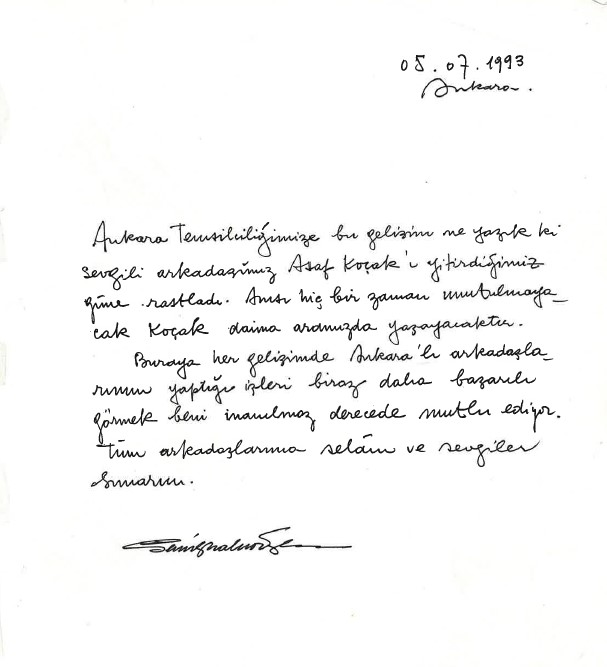 05.07.1993
Ankara.
Ankara Temsilciliğimize bu gelişim ne yazık ki
sevgili arkadaşımız Asaf Koçak'ı yitirdiğimiz
güne rastladı. Anısı hiç bir zaman unutulmaya_
cak Koçak daima aramızda yaşayacaktır.
Buraya her gelişimde Ankara'lı arkadaşla_
rımın yaptığı işleri biraz daha başarılı
görmek beni inanılmaz derecede mutlu ediyor.
Tüm arkadaşlarıma selâm ve sevgiler
sunarım.